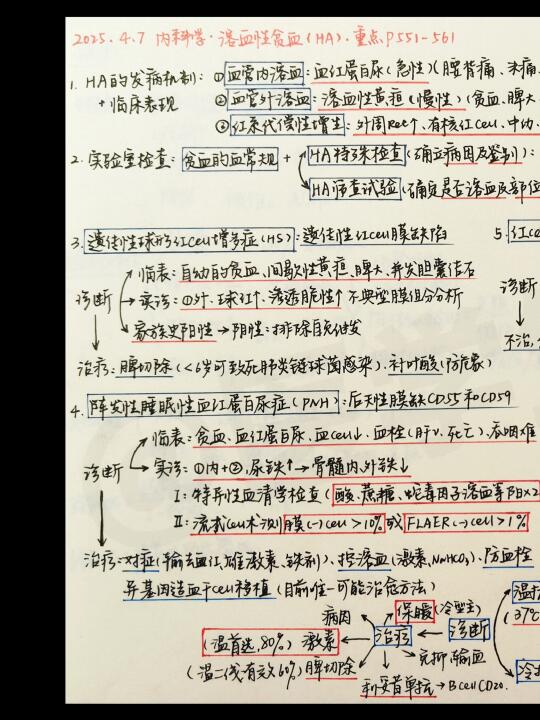 2025.4.7 内科学·溶血性贫血(HA)·重点P551-561
1. HA的发病机制: ①血管内溶血: 血红蛋白尿(急性)(腰背痛、
+临床表现 ②血管外溶血: 溶血性黄疸(慢性)(贫血、脾大
③红系代偿性增生: 外周Ret↑、有核红cell、中幼
2. 实验室检查: 贫血的血常规 + HA特殊检查(确立病因及鉴别):
HA筛查试验(确定是否溶血及部位
3. 遗传性球形红cell增多症(HS): 遗传性红cell膜缺陷
5. 红ce
诊断
临表: 自幼的贫血、间歇性黄疸、脾大、并发胆囊结石
实诊: ①外、球红↑、渗透脆性↑ 不典型膜组分分析
家族史阳性→阴性: 排除自免继发
诊断
不治,
治疗: 脾切除(<6岁可致死肺炎链球菌感染)、补叶酸(防危象)
4. 阵发性睡眠性血红蛋白尿症(PNH): 后天性膜缺CD55和CD59
诊断
临表: 贫血、血红蛋白尿、血cell↓、血栓(肝v、死亡)、吞咽难
实诊: ①内+②, 尿铁↑→骨髓内、外铁↓
I: 特异性血清学检查(酸、蔗糖、蛇毒因子溶血等阳)×2
II: 流式cell术测膜(-)cell>10%或FLAER(-)cell>1%
治疗: 对症(输去血红、雄激素、铁剂)、控溶血(激素、NaHCO₃)、防血栓
异基因造血干cell移植(目前唯一可能治愈方法)
病因 保暖(冷型主)
温抗
(37℃
(温首选, 80%)激素 治疗 诊断
(温二线有效60%)脾切除 免抑、输血
冷抗
利妥昔单抗→BcellCD20.